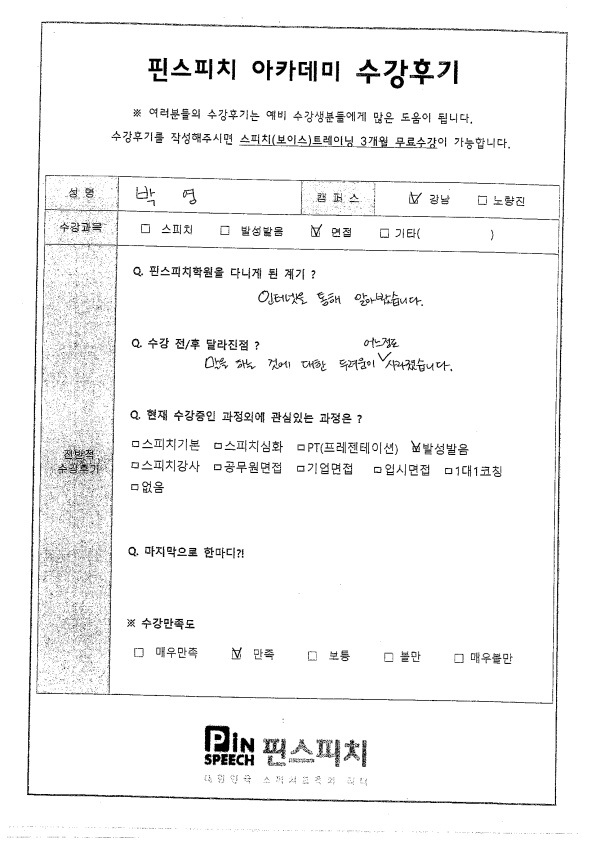 핀스피치 아카데미 수강후기
※ 여러분들의 수강후기는 예비 수강생분들에게 많은 도움이 됩니다.
수강후기를 작성해주시면 스피치(보이스)트레이닝 3개월 무료수강이 가능합니다.
성 명 박 영 캠 퍼 스 ☑ 강남 □ 노량진
수강과목 □ 스피치 □ 발성발음 ☑ 면접 □ 기타( )
전반적
수강후기
Q. 핀스피치학원을 다니게 된 계기 ?
인터넷을 통해 알아봤습니다.
Q. 수강 전/후 달라진점 ?
말을 하는 것에 대한 두려움이 어느정도 사라졌습니다.
Q. 현재 수강중인 과정외에 관심있는 과정은 ?
□스피치기본 □스피치심화 □PT(프레젠테이션) ☑발성발음
□스피치강사 □공무원면접 □기업면접 □입시면접 □1대1코칭
□없음
Q. 마지막으로 한마디?!
※ 수강만족도
□ 매우만족 ☑ 만족 □ 보통 □ 불만 □ 매우불만
PiN SPEECH 핀스피치